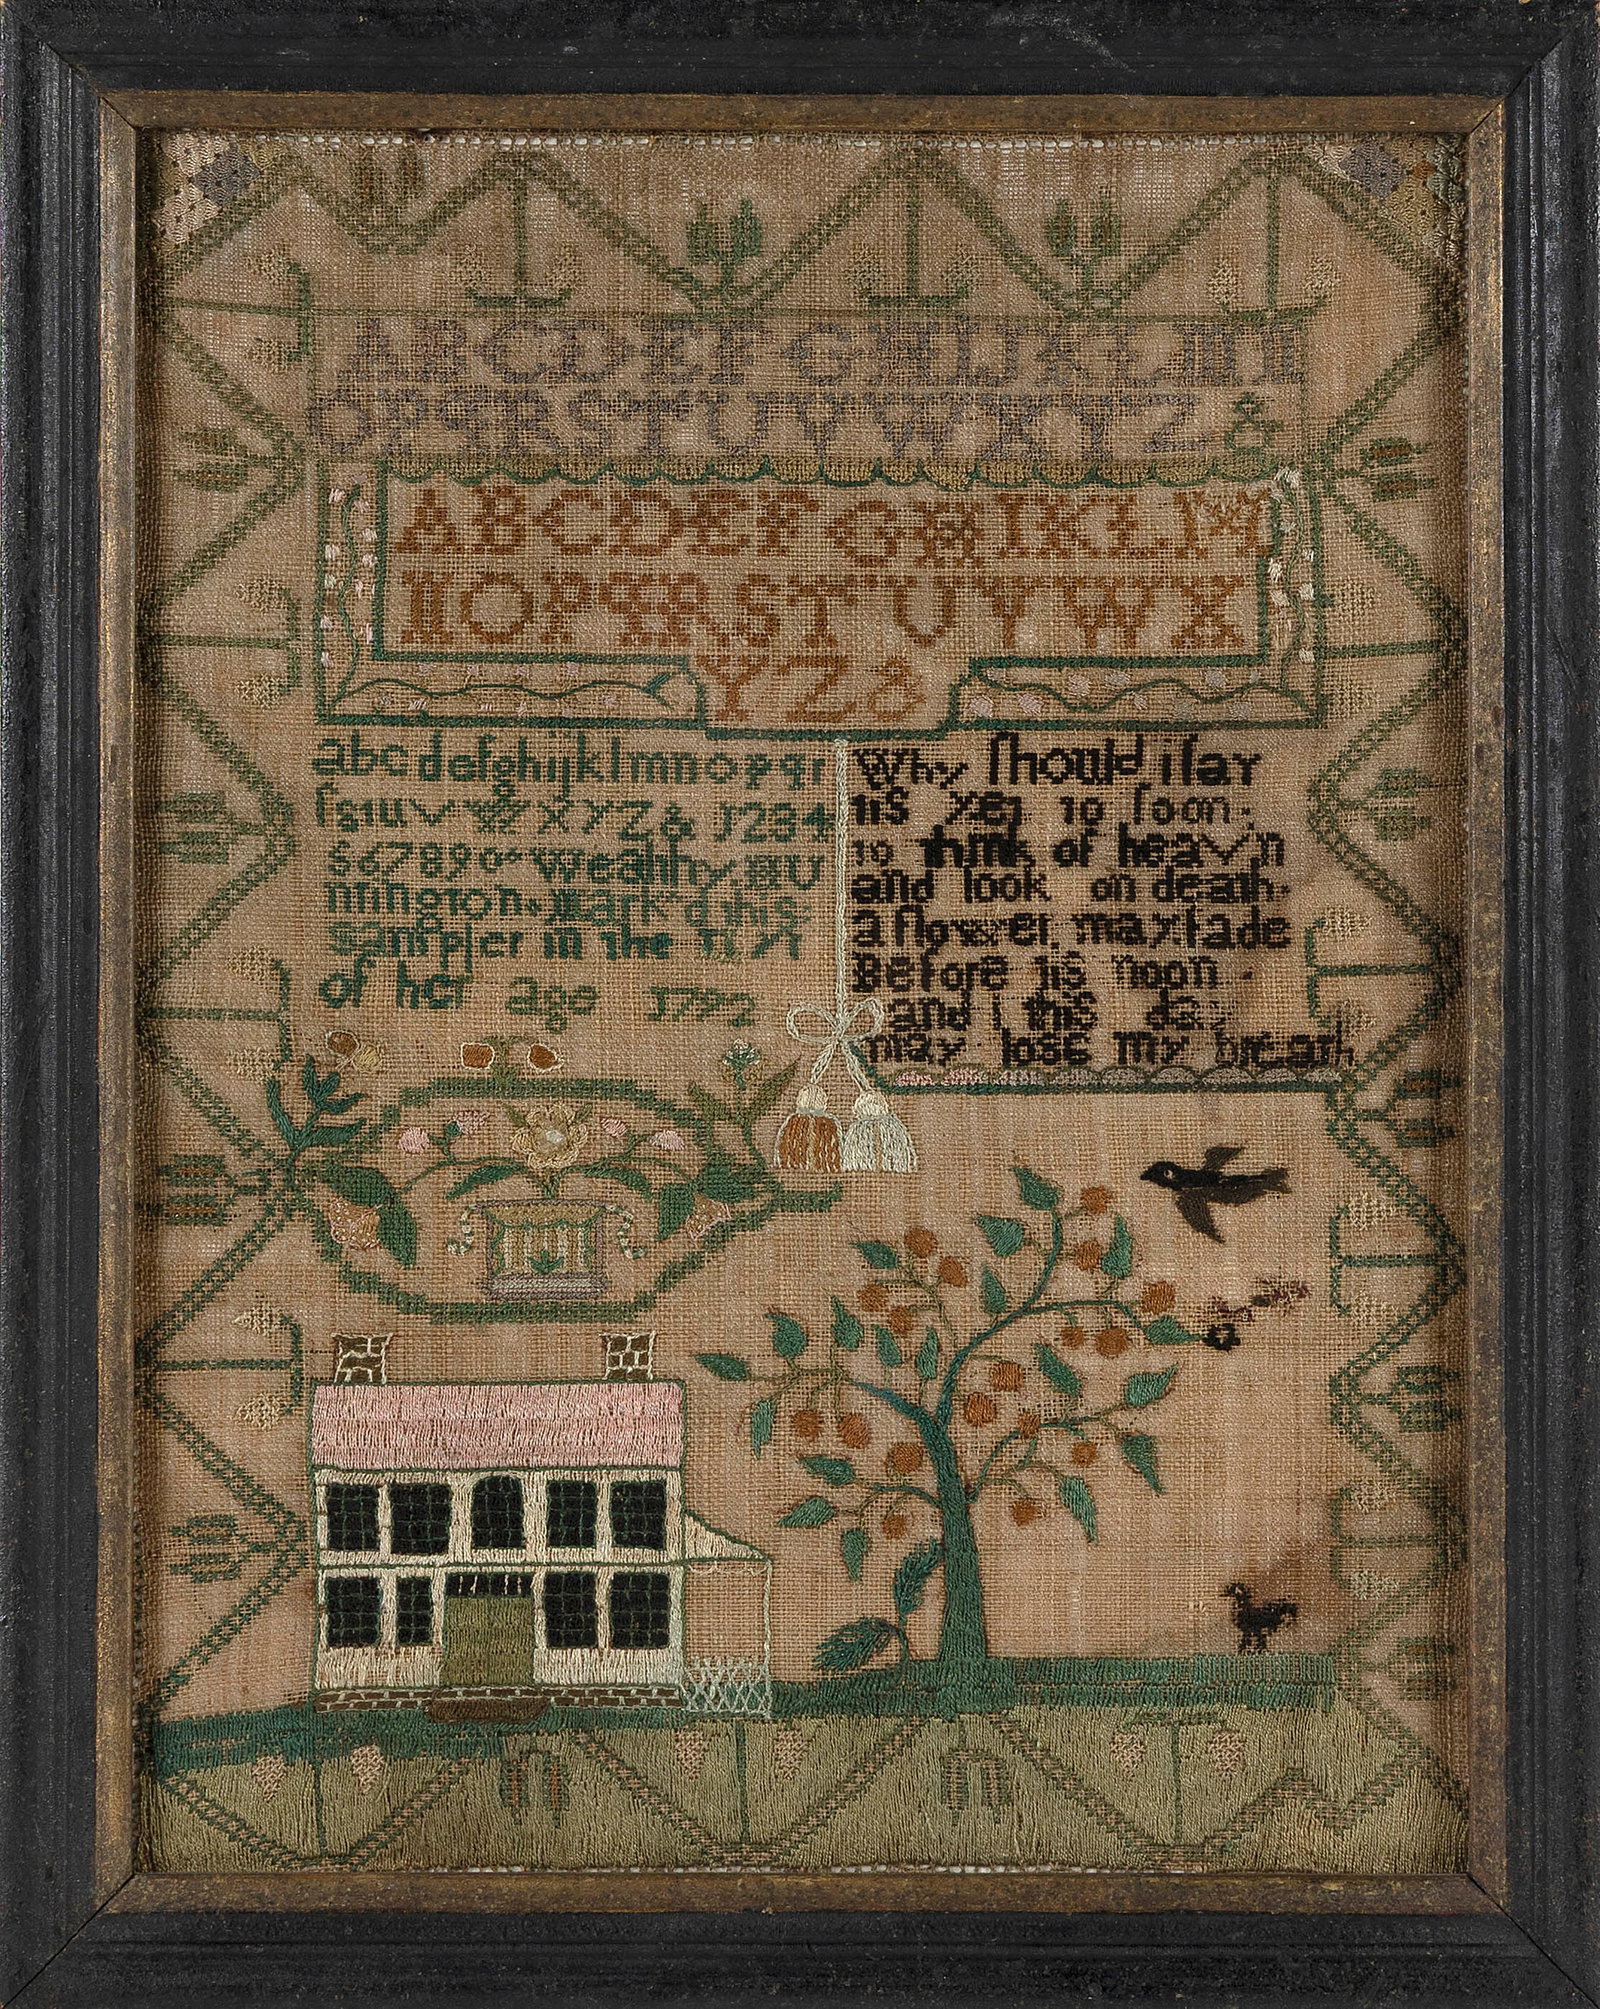 ABCDEFGHIJKLMN
OPQRSTUVWXYZ&
ABCDEFGHIKLM
NOPQRSTUVWX
YZ&
abcdefghijklmnopqr
ſstuvwxyz& 1234
567890 Wealthy HU
ntington mark'd this
sampler in the 11 yr
of her age 1792
Why ſhould i ſay
tis yet to ſoon
to think of heav'n
and look on death
a flower may fade
Before tis noon
and I this day
may lose my breath